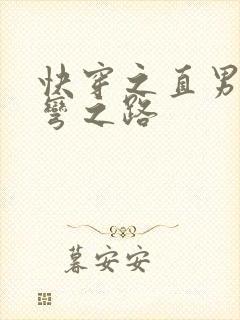 快穿之直男
弯之路
暮安安